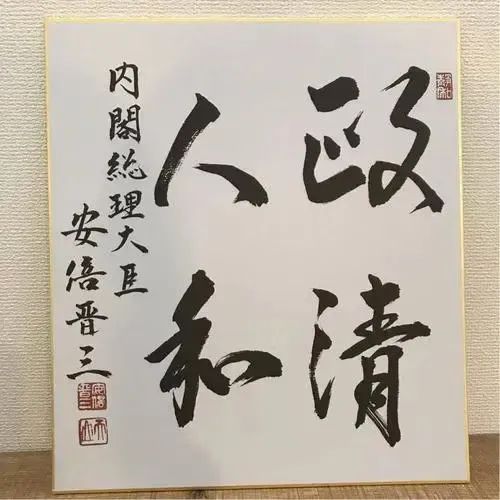 政清
人和
内閣総理大臣
安倍晋三